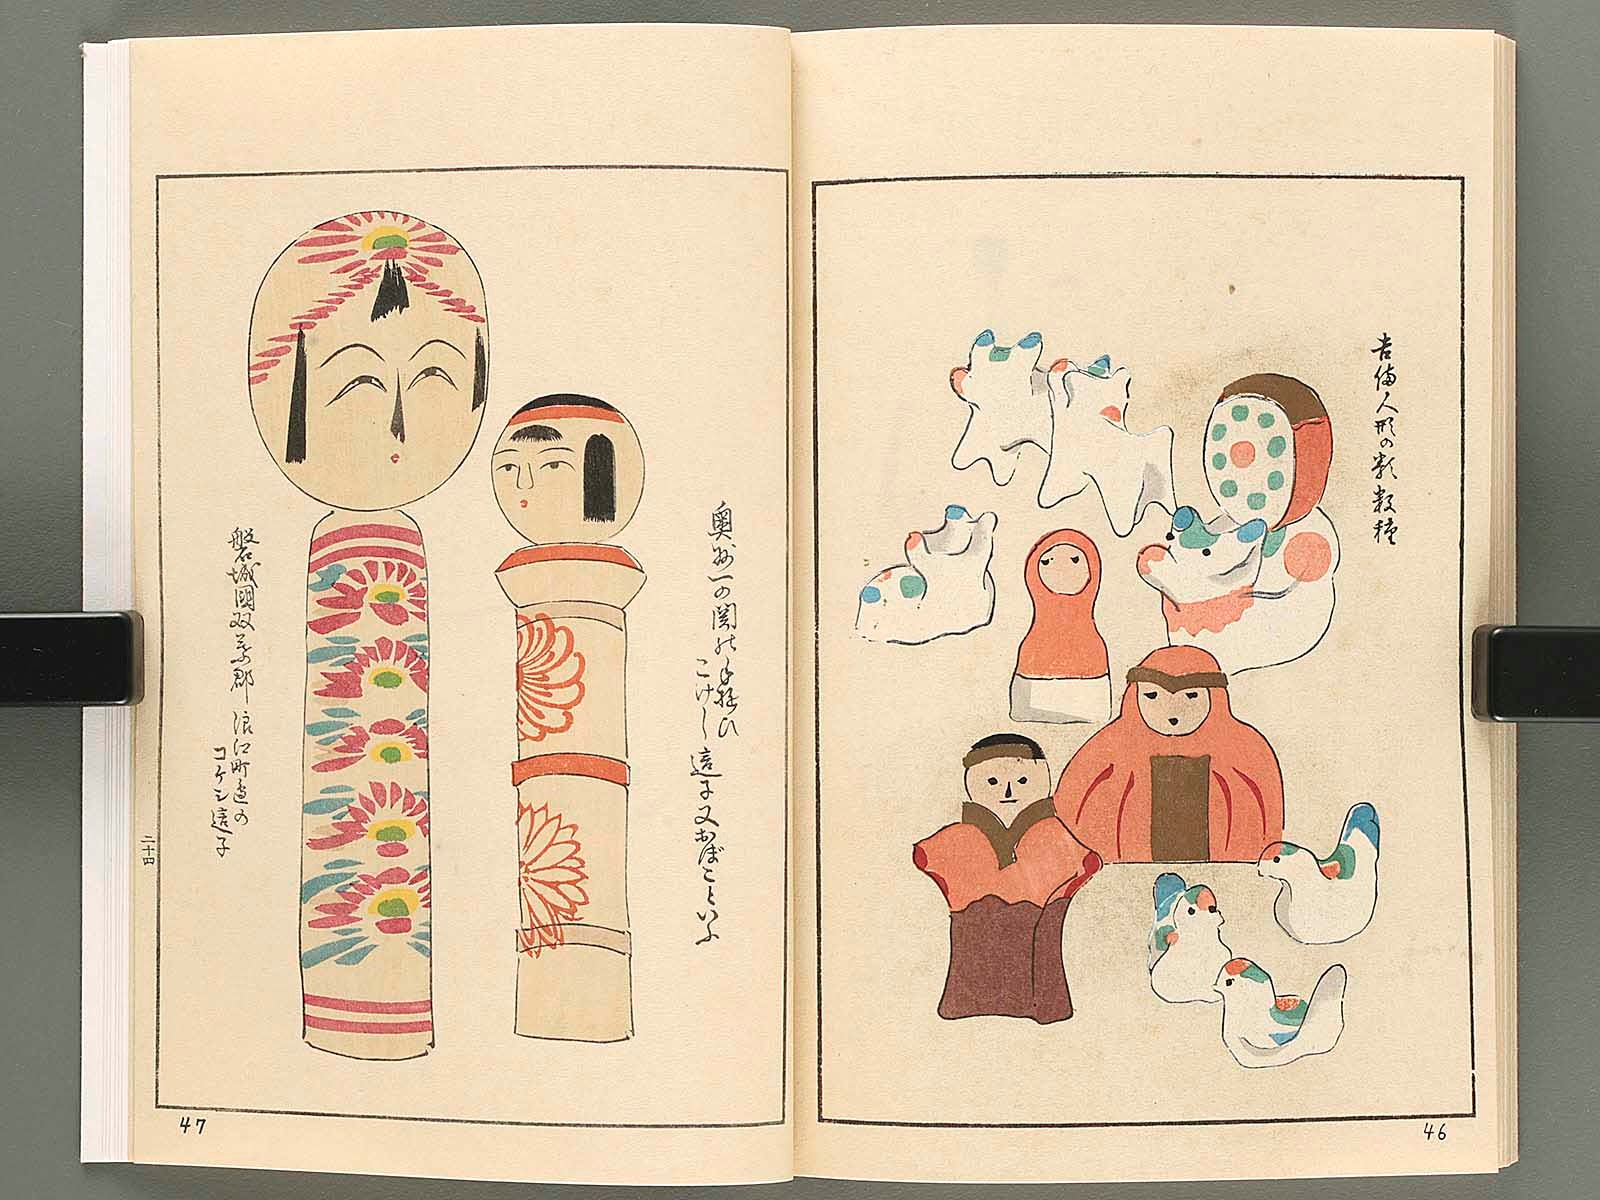 吉備人形の類数種
46
奥州一の関の手遊ひ
こけし這子又おぼこといふ
磐城國双葉郡浪江町邊の
コケシ這子
二十四
47